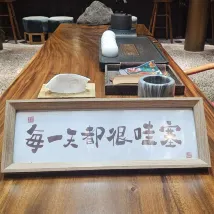 每一天都很哇塞